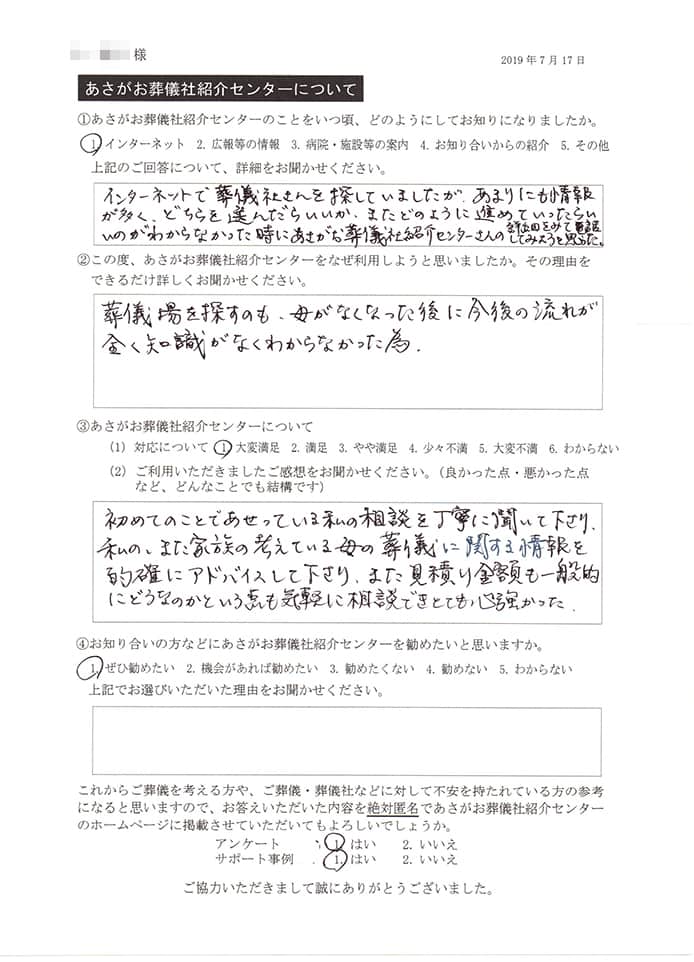 様
2019年7月17日
あさがお葬儀社紹介センターについて
①あさがお葬儀社紹介センターのことをいつ頃、どのようにしてお知りになりましたか。
1. インターネット 2. 広報等の情報 3. 病院・施設等の案内 4. お知り合いからの紹介 5. その他
上記のご回答について、詳細をお聞かせください。
インターネットで葬儀社さんを探していましたが、あまりにも情報
が多く、どちらを選んだらいいか、またどのように進めていったらい
いのかがわからなかった時にあさがお葬儀社紹介センターさんの
をみて電話
してみようと思った。
②この度、あさがお葬儀社紹介センターをなぜ利用しようと思いましたか。その理由を
できるだけ詳しくお聞かせください。
葬儀場を探すのも、母がなくなった後に今後の流れが
全く知識がなくわからなかった為.
③あさがお葬儀社紹介センターについて
(1) 対応について 1. 大変満足 2. 満足 3. やや満足 4. 少々不満 5. 大変不満 6. わからない
(2) ご利用いただきましたご感想をお聞かせください。（良かった点・悪かった点
など、どんなことでも結構です）
初めてのことであせっている私の相談を丁寧に聞いて下さり、
私の、また家族の考えている母の葬儀に関する情報を
的確にアドバイスして下さり、また見積り金額も一般的
にどうなのかという点も気軽に相談できとても心強かった.
④お知り合いの方などにあさがお葬儀社紹介センターを勧めたいと思いますか。
1. ぜひ勧めたい 2. 機会があれば勧めたい 3. 勧めたくない 4. 勧めない 5. わからない
上記でお選びいただいた理由をお聞かせください。
これからご葬儀を考える方や、ご葬儀・葬儀社などに対して不安を持たれている方の参考
になると思いますので、お答えいただいた内容を絶対匿名であさがお葬儀社紹介センター
のホームページに掲載させていただいてもよろしいでしょうか。
アンケート 1. はい 2. いいえ
サポート事例 1. はい 2. いいえ
ご協力いただきまして誠にありがとうございました。